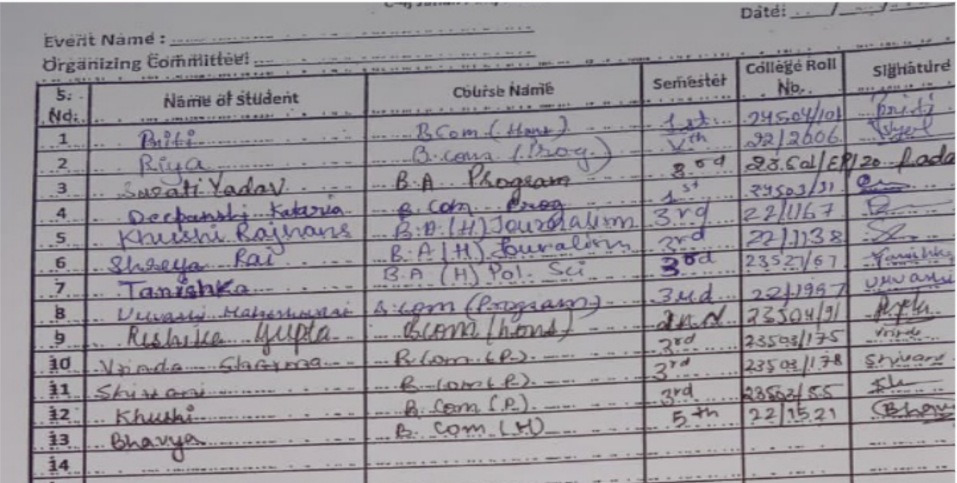 Date:
Event Name :
Organizing Committee:
S. No. Name of Student Course Name Semester College Roll No. Signature
1 Priti B.Com (Hons) 1st 24504/101 Priti
2 Riya B.com (Prog.) Vth 22/2006
3 Swati Yadav B.A Program 3rd 23501/EP/20
4 Deepanshi Kataria B.Com Prog 1st 24503/31
5 Khushi Rajhans B.A.(H) Journalism 3rd 22/1167
6 Shreya Rai B.A (H) Jouralism 3rd 22/1138
7 Tanishka B.A (H) Pol. Sci 3rd 23527/67 Tanishka
8 Urvashi Maheshwari B.com (Program) 3rd 22/1997 urvashi
9 Rishika Gupta Bcom (hons) 2nd 23504/91
10 Vrinda Sharma B.Com (P.) 3rd 23503/175 Vrinda
11 Shivani B.Com (P.) 3rd 23503/178 Shivani
12 Khushi B.Com (P.) 3rd 23503/55
13 Bhavya B.Com (H) 5th 22/1521 Bhavy
14